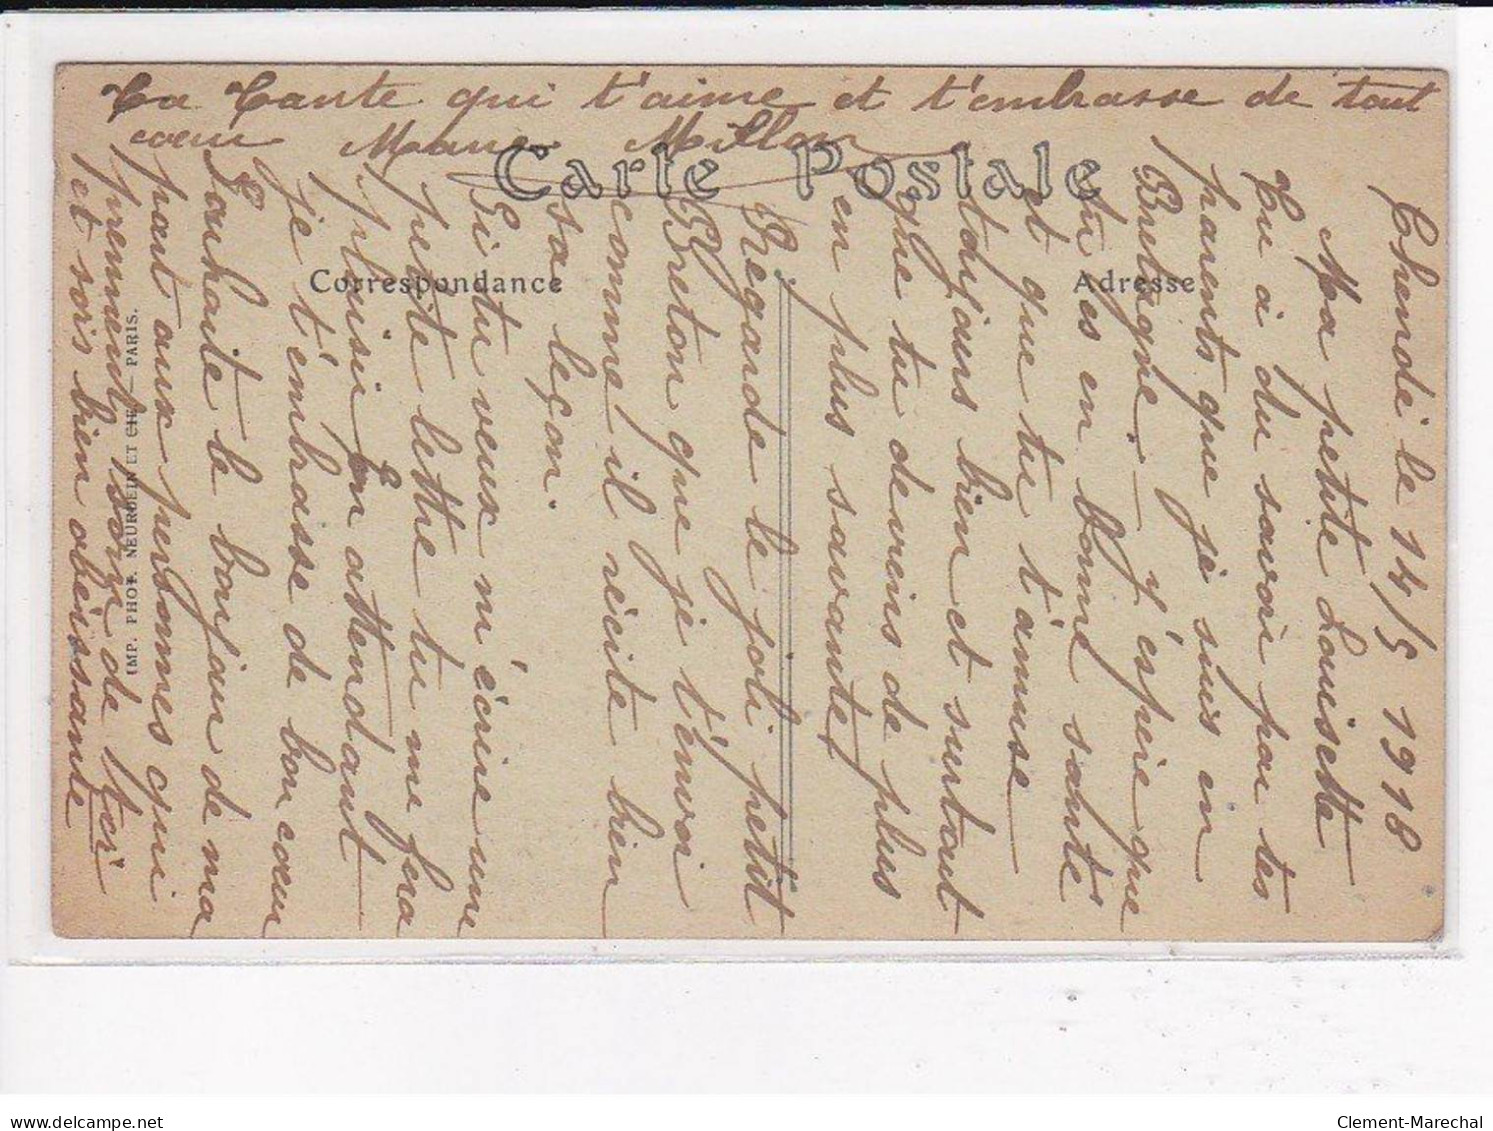 le 14/5 1918
Ma petite Louisette
Tu a du savoir par tes
parents que je suis en
Bretagne. — J'espère que
tu es en bonne santé
et que tu t'amuse
toujours bien et surtout
que tu deviens de plus
en plus savante
Regarde le joli petit
Breton que je t'envoi
comme il récite bien
sa leçon.
Si tu veux m'écrire une
petite lettre tu me fera
plaisir En attendant
je t'embrasse de bon cœur
Souhaite le bonjour de ma
part aux personnes qui
prennent soin de toi
et sois bien obéissante
Ta Tante qui t'aime et t'embrasse de tout
cœur Millon
Carte Postale
Correspondance
Adresse
IMP. PHOT. NEURDEIN ET CIE — PARIS.
delcampe.net
Clement-Marechal